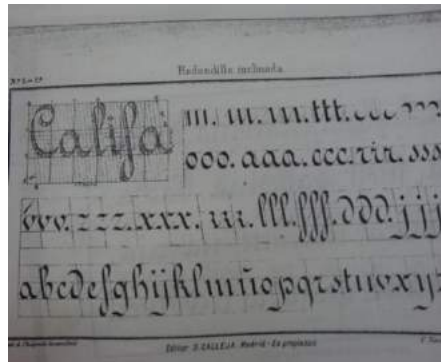 Redondilla inclinada.
Califa
m. ııı. ııı. ttt. ccc
ooo. aaa. ccc. rir. sss
vvv. zzz. xxx. ııı. lll. fff. ddd. jjj
abcdefghijklmnñopqrstuvxyz
Editor S. CALLEJA. Madrid - Es propiedad